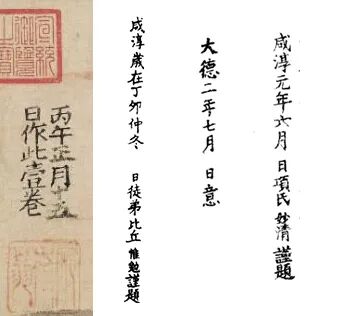 咸淳元年六月 日項氏妙清謹題
大德二年七月 日意
咸淳歲在丁卯仲冬 日徒弟比丘惟勉謹題
宣統
御覽
之寶
丙午正月十五
日作此壹卷